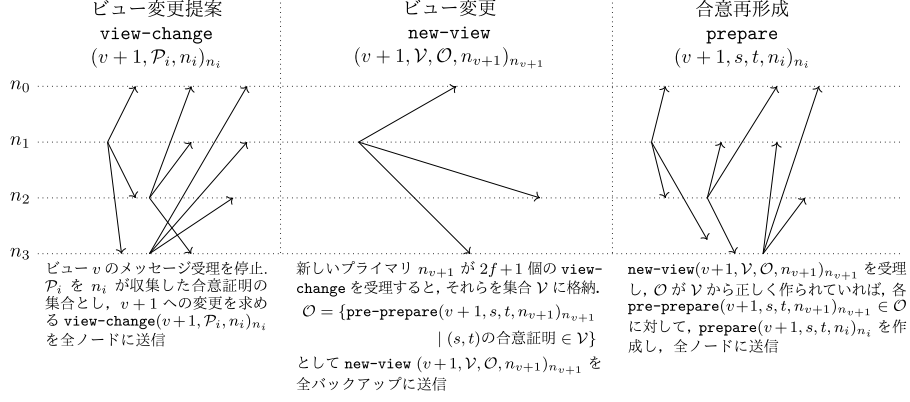 ビュー変更提案
view-change
(v + 1, 𝒫ᵢ, nᵢ)ₙᵢ
ビュー変更
new-view
(v + 1, 𝒱, 𝒪, nᵥ₊₁)ₙᵥ₊₁
合意再形成
prepare
(v + 1, s, t, nᵢ)ₙᵢ
n₀
n₁
n₂
n₃
ビュー v のメッセージ受理を停止.
𝒫ᵢ を nᵢ が収集した合意証明の
集合とし, v + 1 への変更を求め
る view-change(v+1, 𝒫ᵢ, nᵢ)ₙᵢ
を全ノードに送信
新しいプライマリ nᵥ₊₁ が 2f+1 個の view-
change を受理すると, それらを集合 𝒱 に格納.
𝒪 = {pre-prepare(v+1, s, t, nᵥ₊₁)ₙᵥ₊₁
| (s, t)の合意証明 ∈ 𝒱}
として new-view (v+1, 𝒱, 𝒪, nᵥ₊₁)ₙᵥ₊₁ を
全バックアップに送信
new-view(v+1, 𝒱, 𝒪, nᵥ₊₁)ₙᵥ₊₁ を受理
し, 𝒪 が 𝒱 から正しく作られていれば, 各
pre-prepare(v+1, s, t, nᵥ₊₁)ₙᵥ₊₁ ∈ 𝒪
に対して, prepare(v+1, s, t, nᵢ)ₙᵢ を作
成し, 全ノードに送信